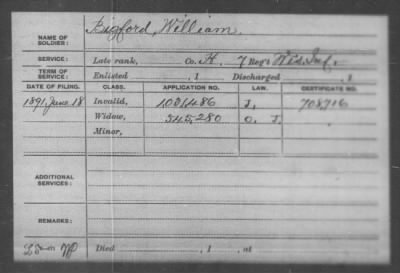 NAME OF SOLDIER: Bigford, William.
SERVICE: Late rank, Co. H, 7 Reg't Wis Inf.
TERM OF SERVICE: Enlisted , 1 Discharged , 1
DATE OF FILING. CLASS. APPLICATION NO. LAW. CERTIFICATE NO.
1891, June 18 Invalid, 1031486 J. 708716
Widow, 345,280 O. J.
Minor,
ADDITIONAL SERVICES:
REMARKS:
Died , 1 , at